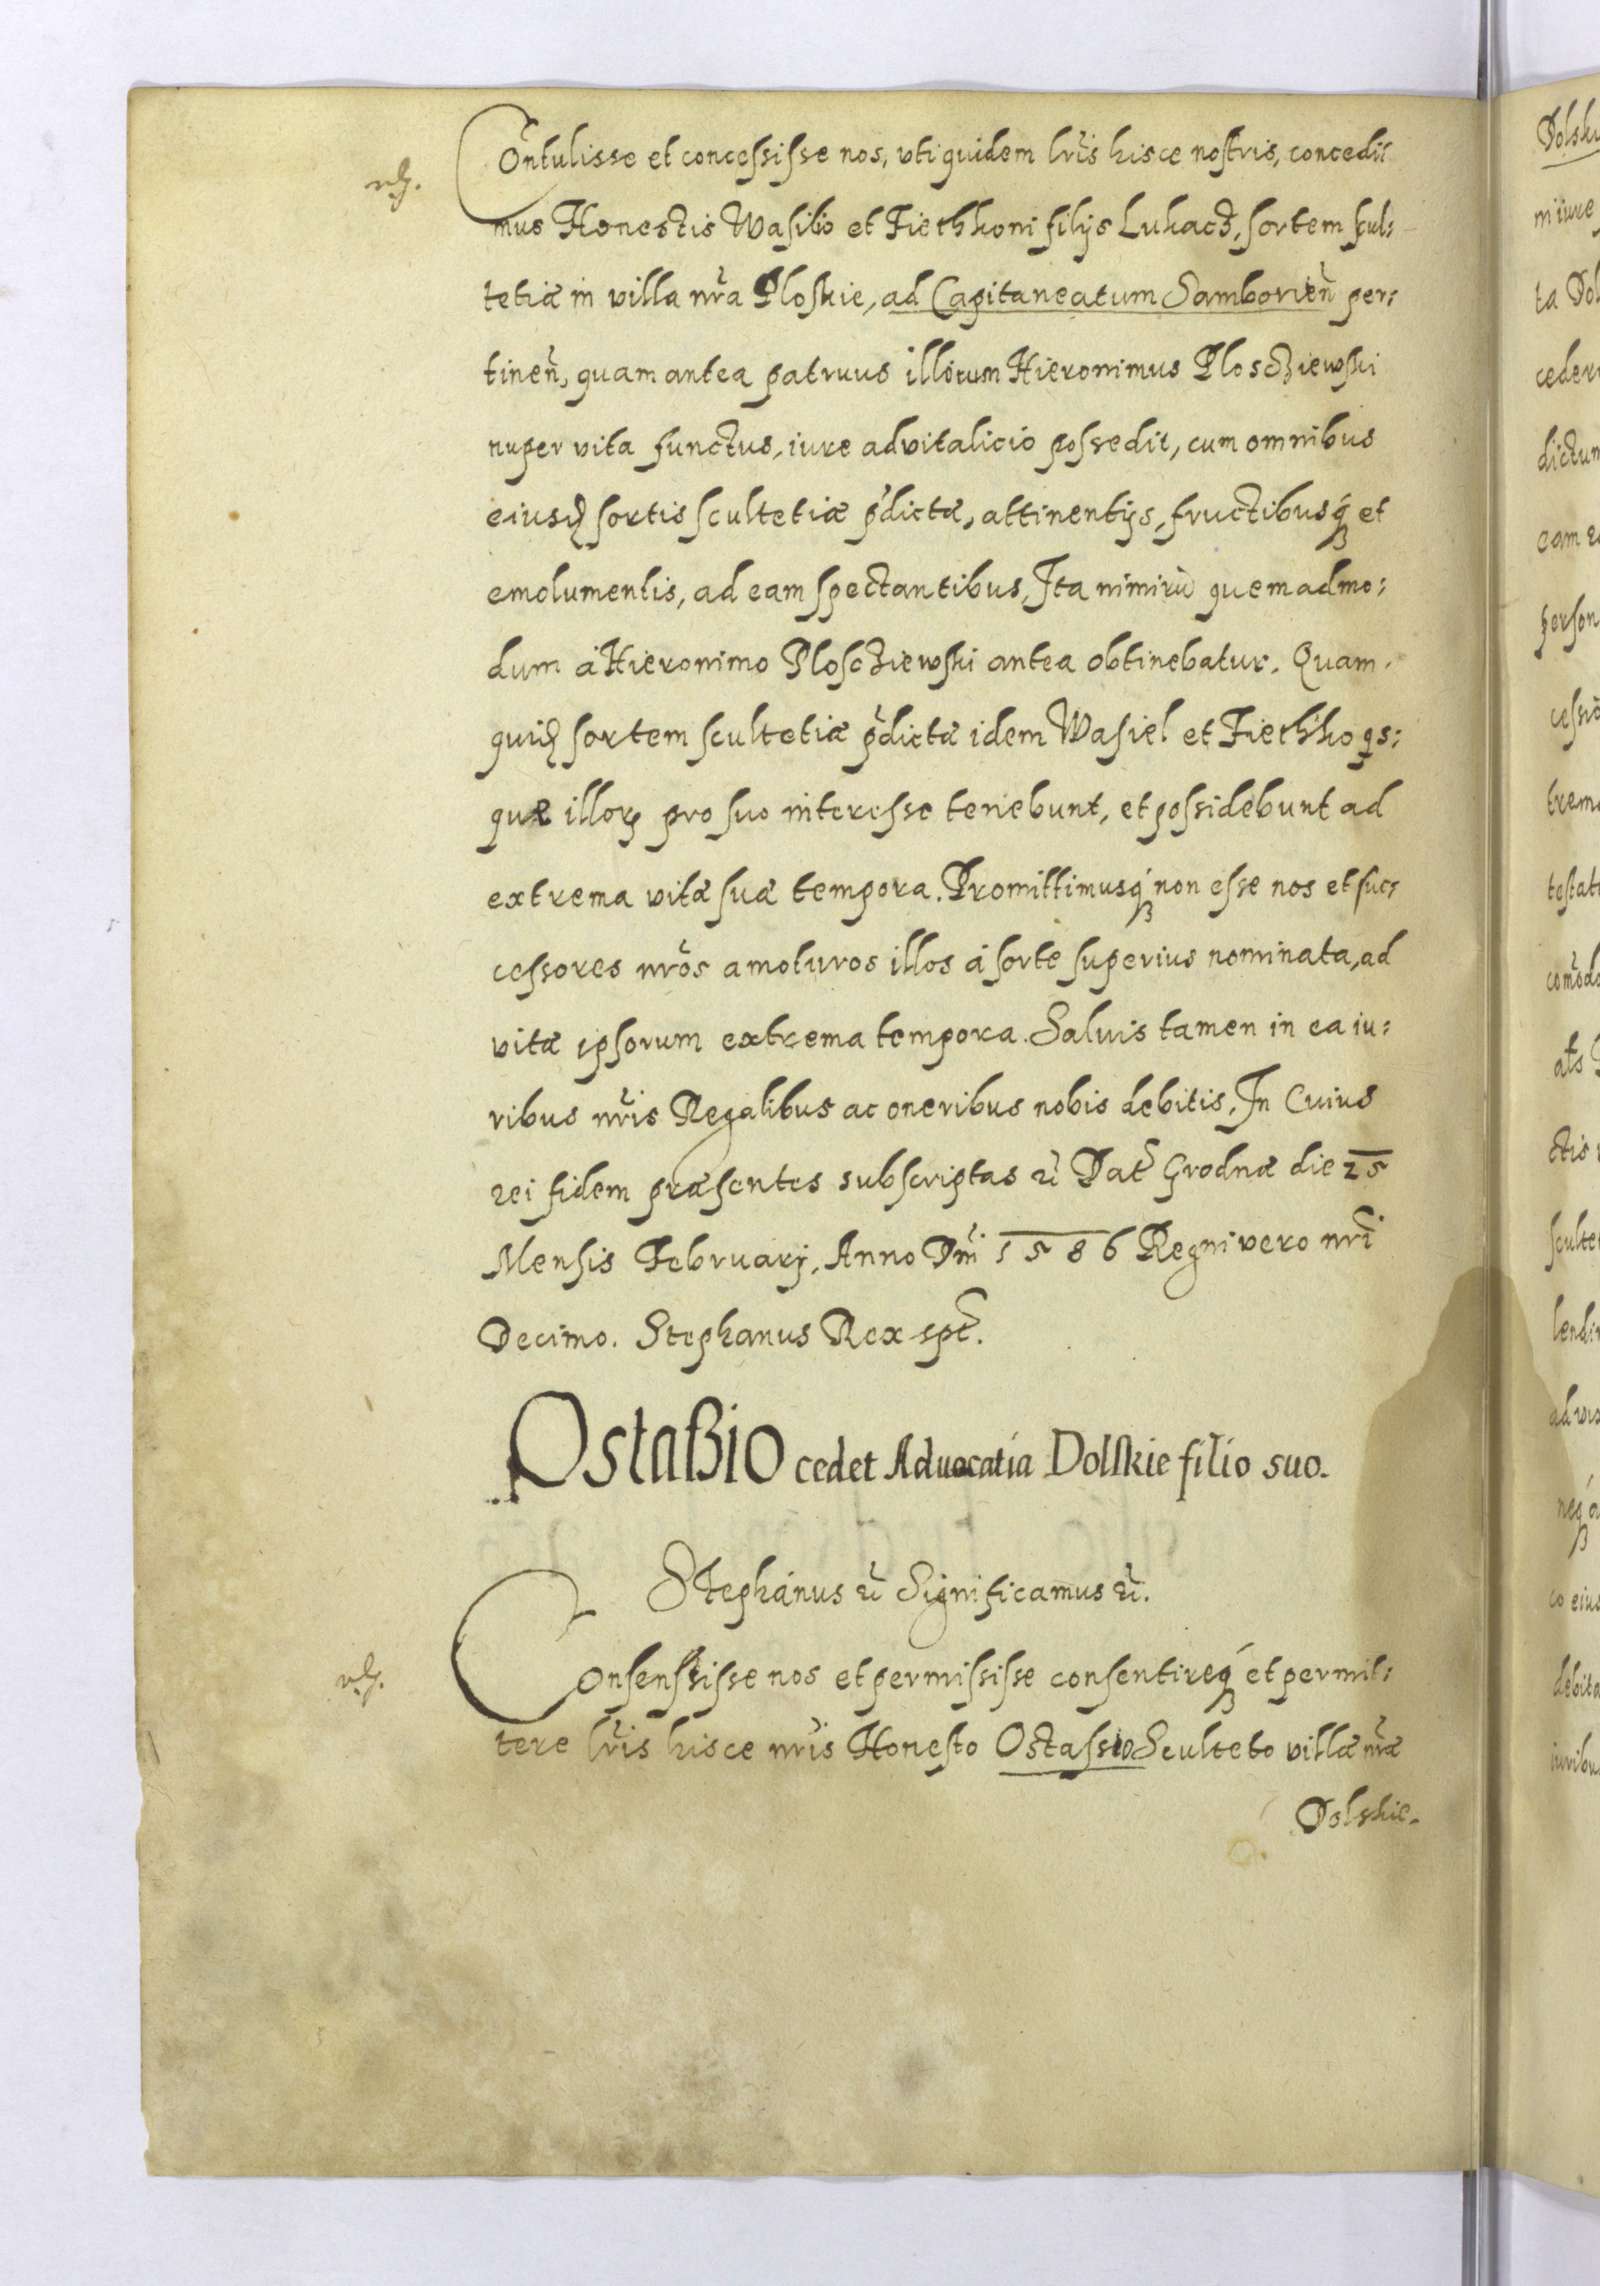 Contulisse et concessisse nos, uti quidem lr̃is hisce nostris, concedi:
mus Honestis Wasilio et Fiethkoni filijs Lukacz, sortem scul:
tetiæ in villa nr̃a Ploskie, ad Capitaneatum Samborień per:
tineñ, quam antea patruus illorum Hieronimus Ploscziewski
nuper vita functus, iure advitalicio possedit, cum omnibus
eiusd sortis scultetiæ p̃dictæ, attinentijs, fructibusq́ et
emolumentis, ad eam spectantibus, Ita nimirũ quemadmo:
dum á Hieronimo Ploscziewski antea obtinebatur. Quam
quid sortem scultetiæ p̃dictæ idem Wasiel et Fiethko qs:
que illoꝝ pro suo interesse tenebunt, et possidebunt ad
extrema vitæ suæ tempora. Promittimusq́ non esse nos et suc:
cessores nr̃os amoturos illos á sorte superius nominata, ad
vitæ ipsorum extrema tempora. Salvis tamen in ea iu:
ribus nr̃is Regalibus ac oneribus nobis debitis, In Cuius
rei fidem præsentes subscriptas Dat̃ Grodnæ die 25
Mensis Februarij, Anno Dñi 1586 Regni vero nr̃i
Decimo. Stephanus Rex spt̃.
Ostaßio cedet Advocatia Dolskie filio suo.
Stephánus Significamus
Consensisse nos et permississe consentireq́ et permit:
tere lr̃is hisce nr̃is Honesto Ostassio Sculteto villæ nr̃æ
Dolskie.